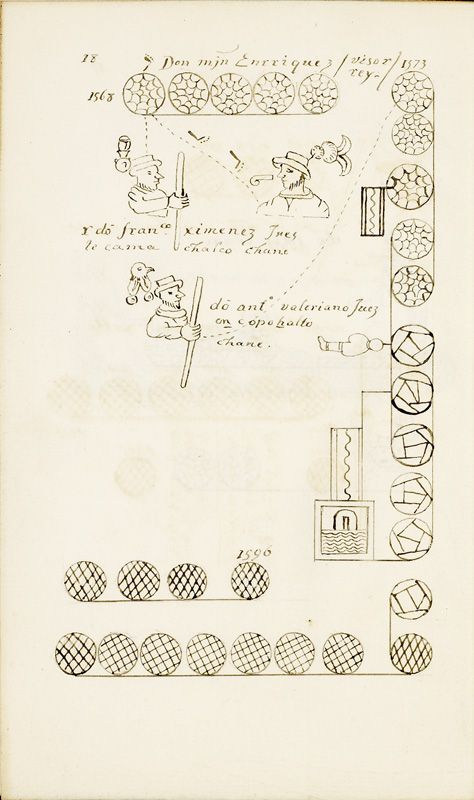 18
Don mjñ Enrriquez / visor
rey - / 1573
1568
y dõ fran^co ximenez Juez
te cama chalco chane
dõ ant° valeriano Juez
en copohalto
chane.
1596